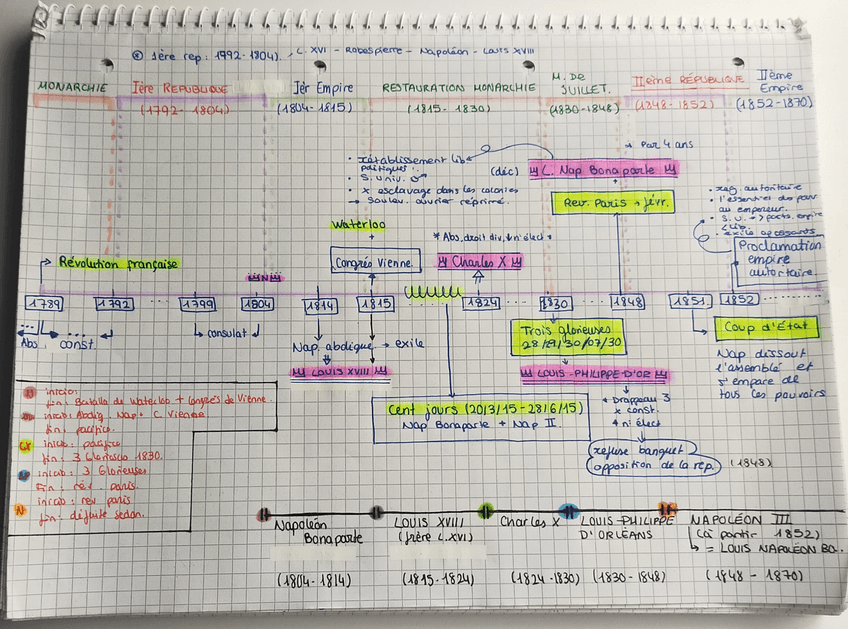 ⊛ 1ère rep: 1992-1804). L. XVI - Robespierre - Napoléon - Louis XVIII
MONARCHIE
Ière REPUBLIQUE
(1792 - 1804)
Ièr Empire
(1804 - 1815)
RESTAURATION MONARCHIE
(1815 - 1830)
M. DE
JUILLET.
(1830-1848)
IIème RÉPUBLIQUE
(1848-1852)
IIème
Empire
(1852-1870)
→ Par 4 ans
• rétablissement lib
politiques
• S. univ. ♂
• x esclavage dans les colonies
→ Soulev. ouvrier réprimé.
(déc)
L. Nap Bonaparte
+
Rev. Paris → févr.
• reg. autoritaire
• l'essentiel des pouv
au empereur.
• exile opposants
Proclamation
empire
autoritaire.
Waterloo
+
Congrés Vienne.
* Abs, droit div, ni élect *
Charles X
Révolution française
N
1789
1792
1799
1804
1814
1815
1824
1830
1848
1851
1852
Abs.
const.
consulat
Nap. abdique → exile
LOUIS XVIII
Trois glorieuses
28/29/30/07/30
LOUIS-PHILIPPE D'OR
Coup d'État
Nap dissout
l'assemblé et
s'empare de
tous les pouvoirs
* Drappeau 3
x const.
* ni élect
Cent jours (20/3/15-28/6/15)
Nap Bonaparte + Nap II.
refuse banquet
opposition de la rép.
(1848)
inicio:
fin: Batalla de Waterloo + Congrés de Vienne.
inicio: Abdig. Nap + C. Vienne
fin: pacífico.
inicio: pacífico
fin: 3 Gloriosas 1830.
inicio: 3 Glorieuses
Fin: rév. paris.
inicio: rev paris
fin: défaite sedan.
Napoléon
Bonaparte
(1804-1814)
LOUIS XVIII
(frère L.XVI)
(1815-1824)
Charles X
(1824-1830)
LOUIS-PHILIPPE
D'ORLÉANS
(1830-1848)
NAPOLÉON III
(à partir 1852)
↳ = LOUIS NAPOLÉON BO.
(1848 - 1870)